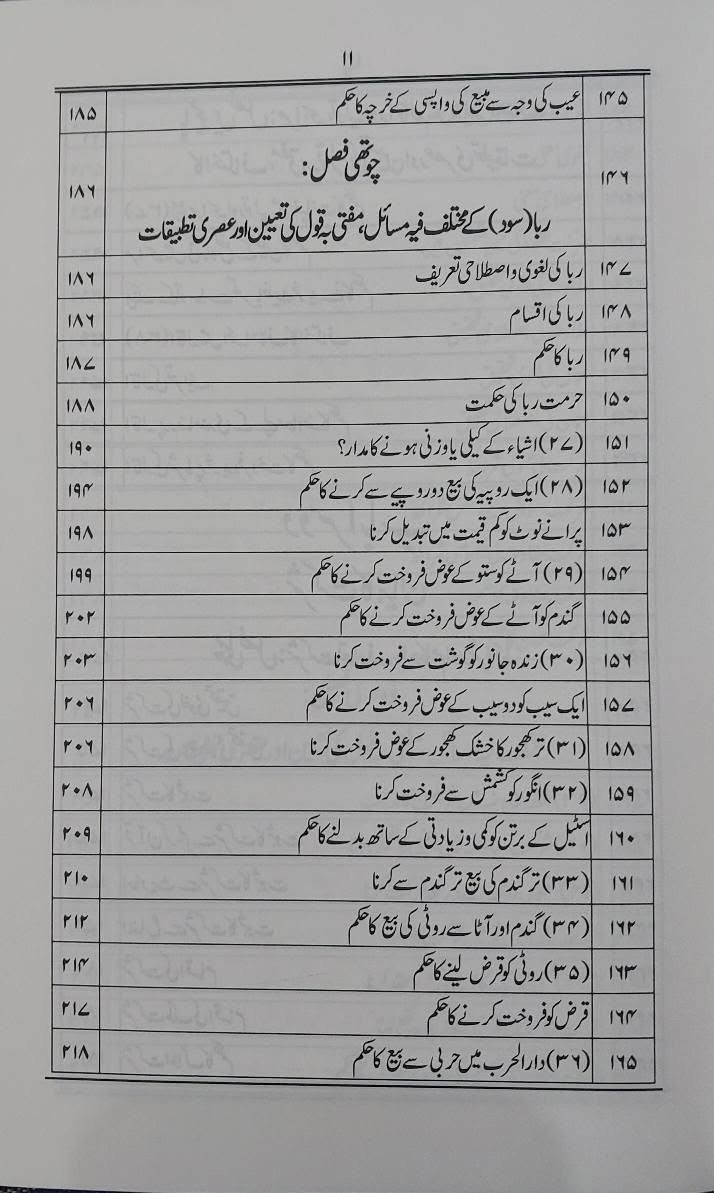 ۱۱
۱۴۵ عیب کی وجہ سے مبیع کی واپسی کے خرچہ کا حکم ۱۸۵
۱۴۶ چوتھی فصل: ۱۸۶
ربا (سود) کے مختلف فیہ مسائل، مفتی بہ قول کی تعیین اور عصری تطبیقات
۱۴۷ ربا کی لغوی و اصطلاحی تعریف ۱۸۶
۱۴۸ ربا کی اقسام ۱۸۶
۱۴۹ ربا کا حکم ۱۸۷
۱۵۰ حرمت ربا کی حکمت ۱۸۸
۱۵۱ (۲۷) اشیاء کے کیلی یا وزنی ہونے کا مدار؟ ۱۹۰
۱۵۲ (۲۸) ایک روپیہ کی بیع دو روپیے سے کرنے کا حکم ۱۹۴
۱۵۳ پرانے نوٹ کو کم قیمت میں تبدیل کرنا ۱۹۸
۱۵۴ (۲۹) آٹے کو ستو کے عوض فروخت کرنے کا حکم ۱۹۹
۱۵۵ گندم کو آٹے کے عوض فروخت کرنے کا حکم ۲۰۲
۱۵۶ (۳۰) زندہ جانور کو گوشت سے فروخت کرنا ۲۰۳
۱۵۷ ایک سیب کو دو سیب کے عوض فروخت کرنے کا حکم ۲۰۶
۱۵۸ (۳۱) تر کھجور کا خشک کھجور کے عوض فروخت کرنا ۲۰۶
۱۵۹ (۳۲) انگور کو کشمش سے فروخت کرنا ۲۰۸
۱۶۰ اسٹیل کے برتن کو کمی و زیادتی کے ساتھ بدلنے کا حکم ۲۰۹
۱۶۱ (۳۳) تر گندم کی بیع تر گندم سے کرنا ۲۱۰
۱۶۲ (۳۴) گندم اور آٹا سے روٹی کی بیع کا حکم ۲۱۲
۱۶۳ (۳۵) روٹی کو قرض لینے کا حکم ۲۱۴
۱۶۴ قرض کو فروخت کرنے کا حکم ۲۱۷
۱۶۵ (۳۶) دار الحرب میں حربی سے بیع کا حکم ۲۱۸